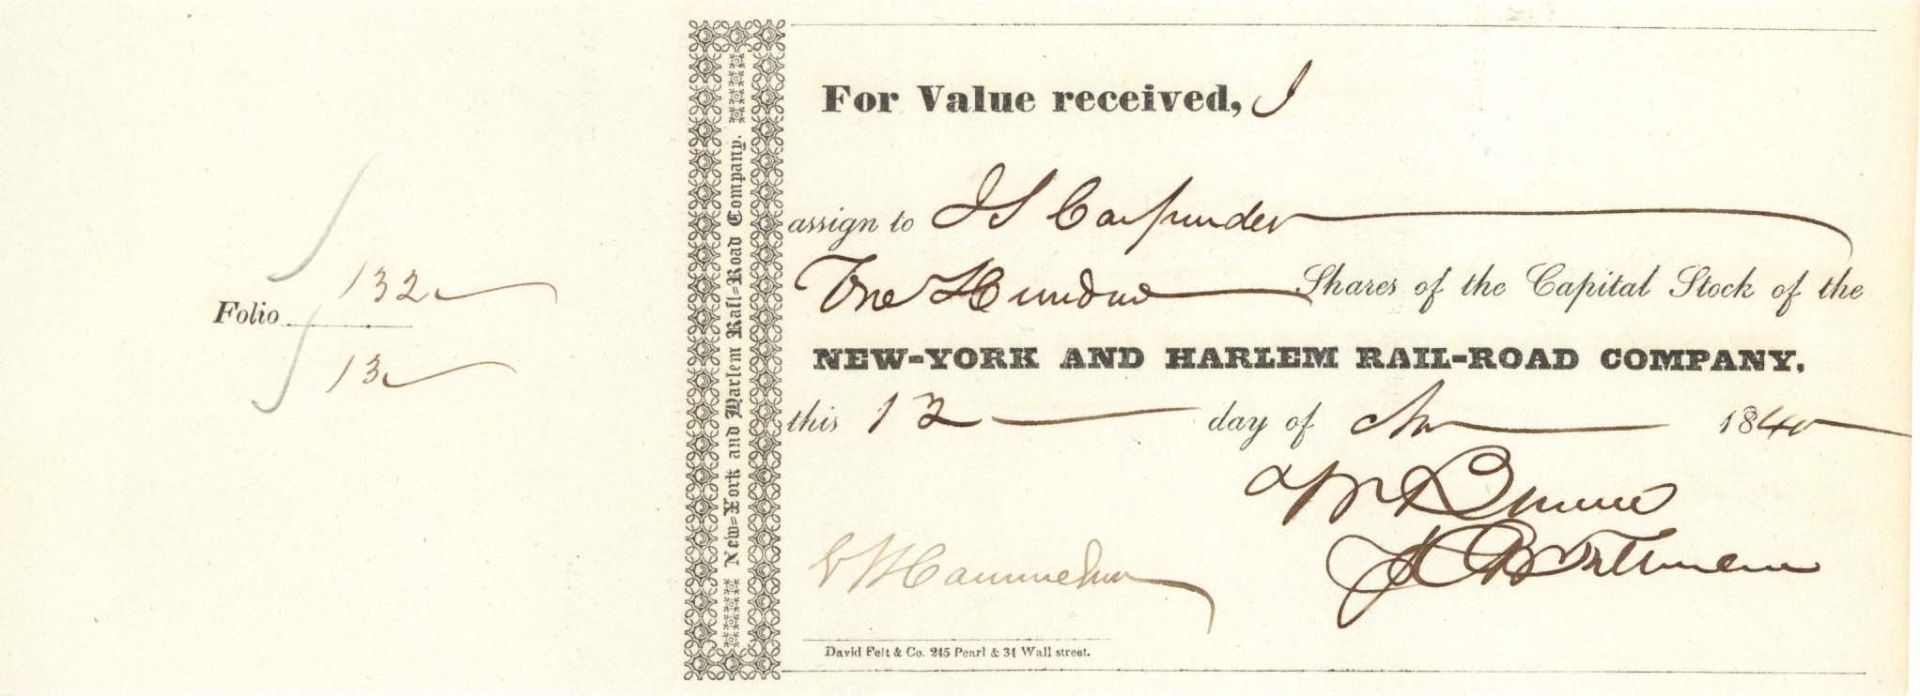 132
Folio
13
New=York and Harlem Rail=Road Company.
For Value received, I
assign to J S Carpender
One Hundred Shares of the Capital Stock of the
NEW-YORK AND HARLEM RAIL-ROAD COMPANY,
this 12 day of 1840
David Felt & Co. 245 Pearl & 34 Wall street.